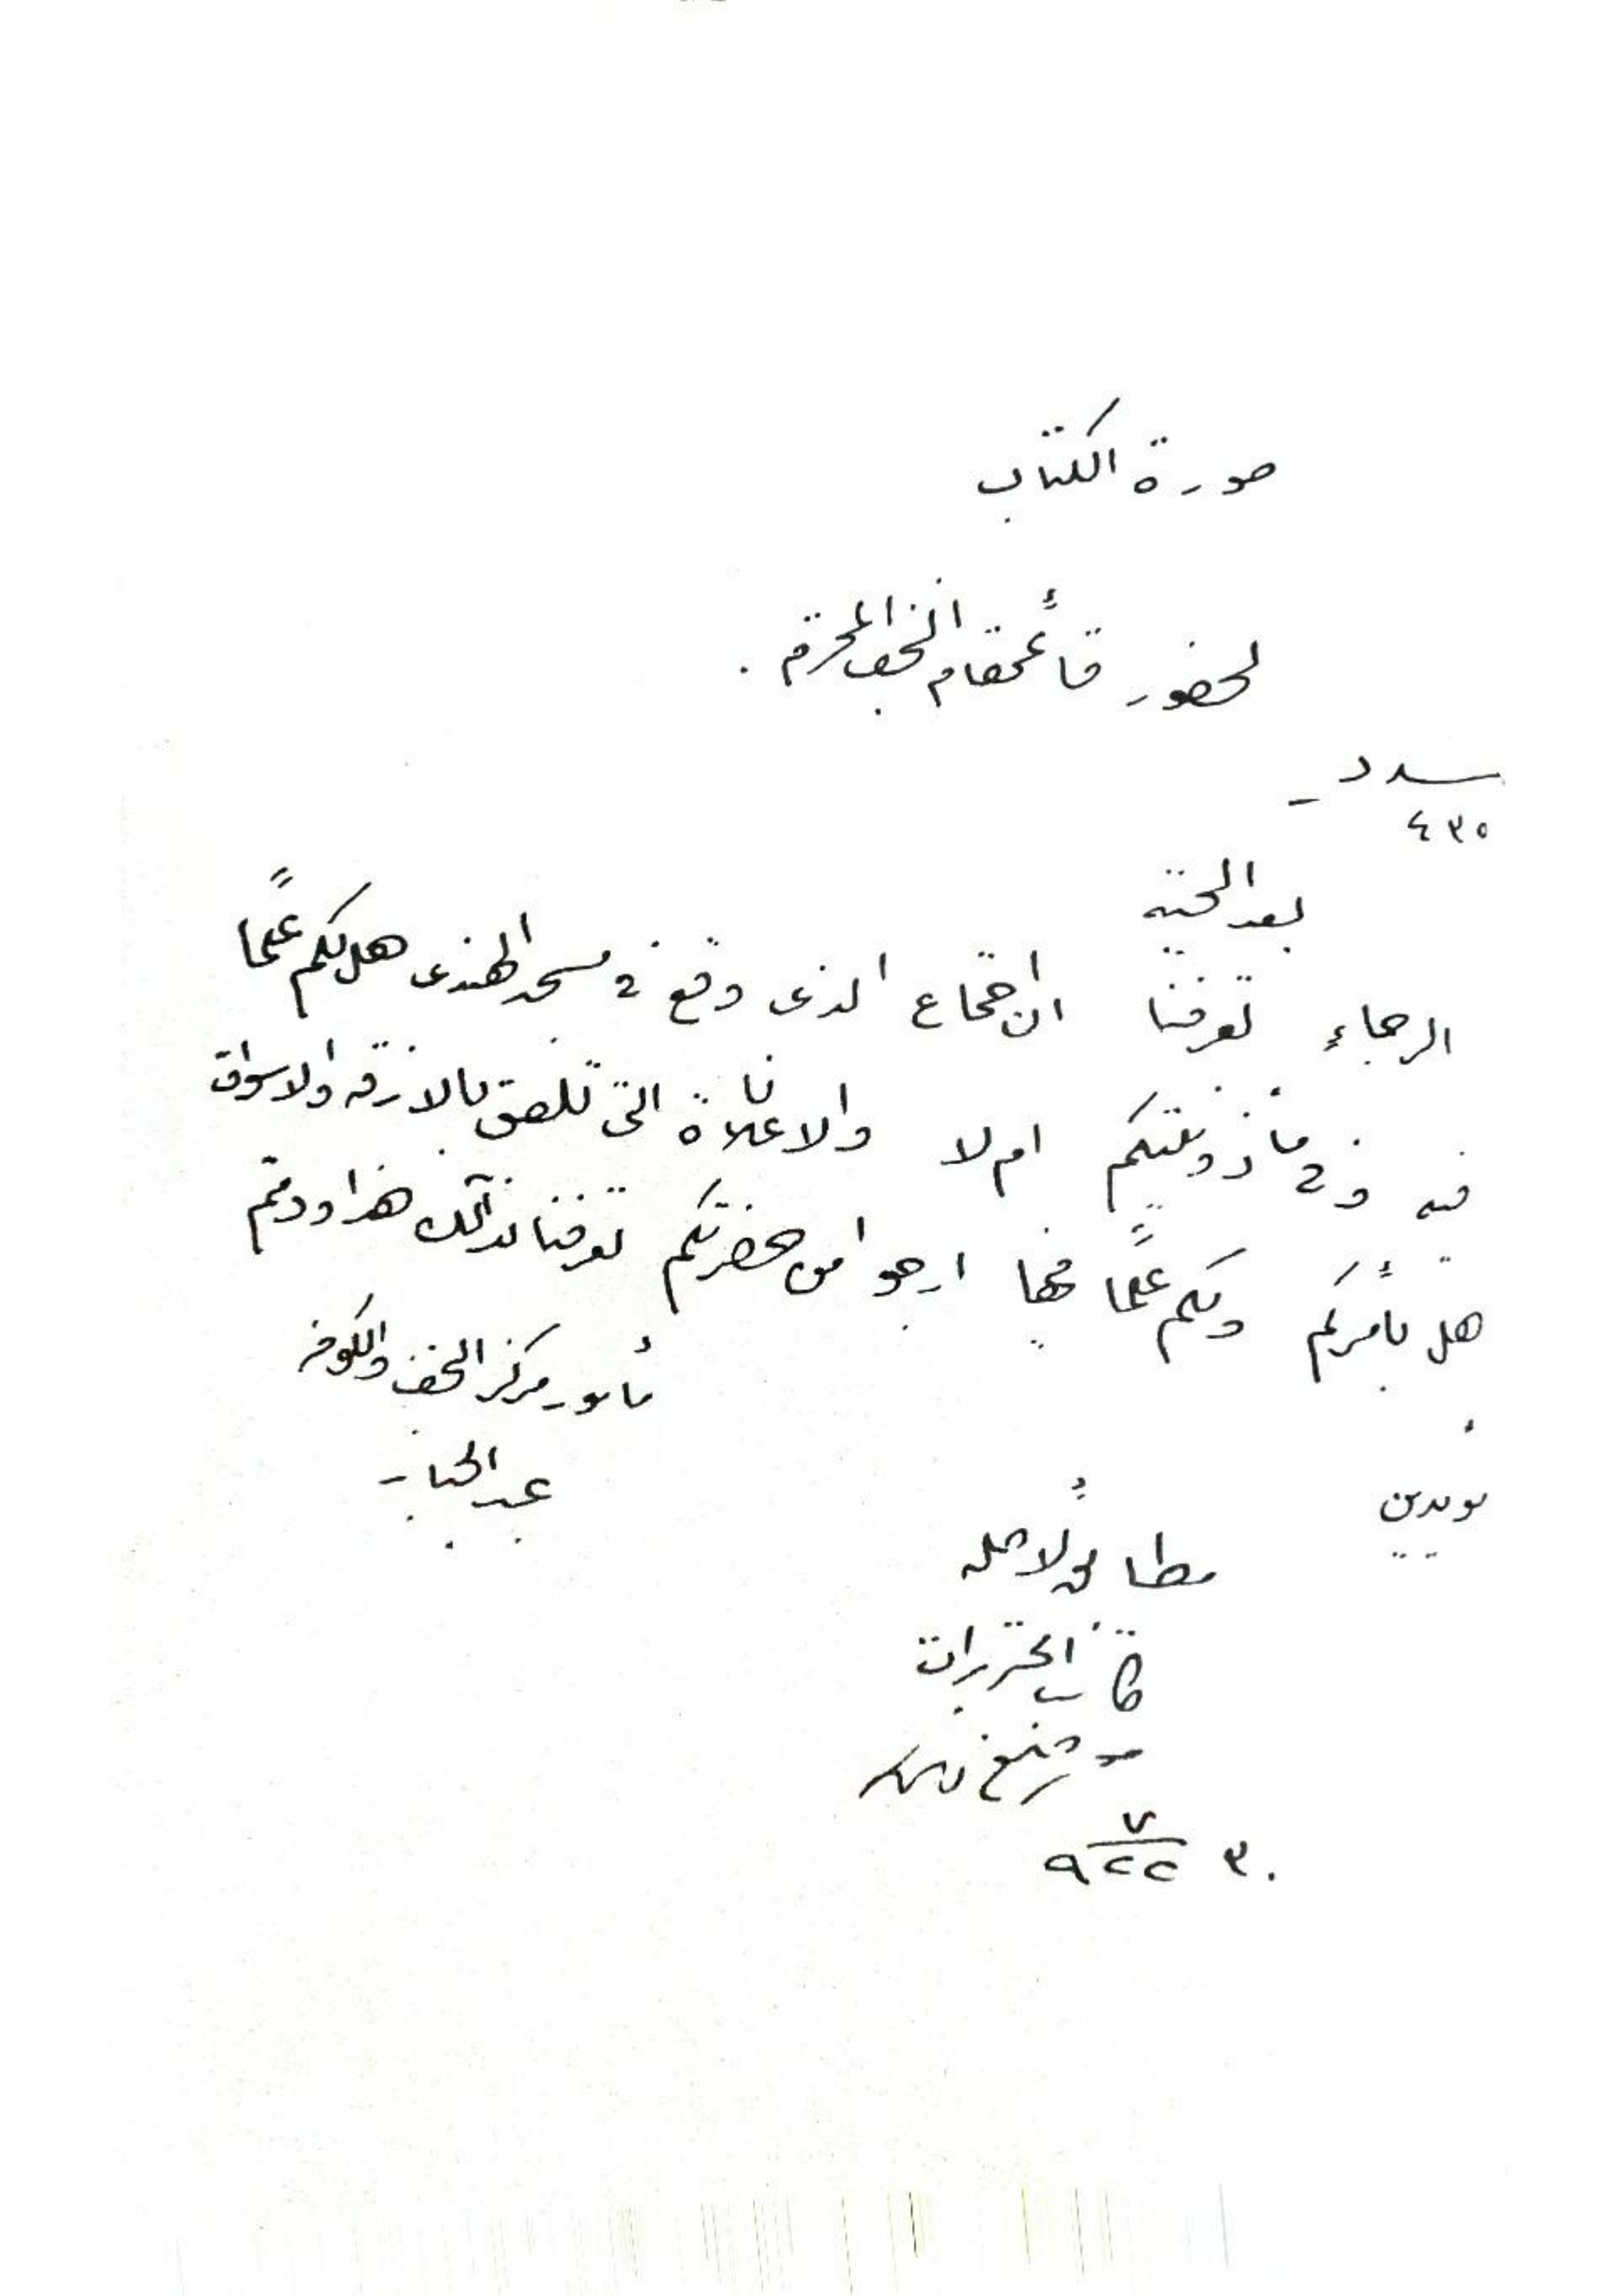 صورة الكتاب
لحضور قائممقام النجف المحترم .
عدد
٤٣٥
بعد التحية
الرجاء تعرفنا ان اجتماع الذي وقع في مسجد الهندي هل لكم علماً
فيه وفي مأذونيتكم ام لا والاعلانات التي تلصق بالازقه والاسواق
هل بأمركم ولكم علماً فيها ارجوا من حضرتكم تعرفنا بذالك هذا ودمتم
مأمور مركز النجف والكوفه
عبد الجبار
مطابق لأصله
كاتب التحريرات
٣٠ ٧ ٩٢٢